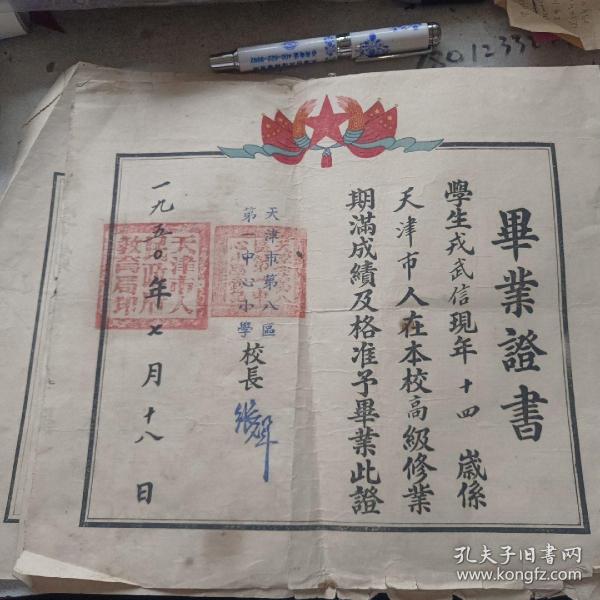 畢業證書
學生戎武信現年十四歲係
天津市人在本校高級修業
期滿成績及格准予畢業此證
天津市第八區
第一中心小學
校長
一九五〇年七月十八日
天津市人
教育局印
400-622-9967
孔夫子旧书网
www.kongfz.com